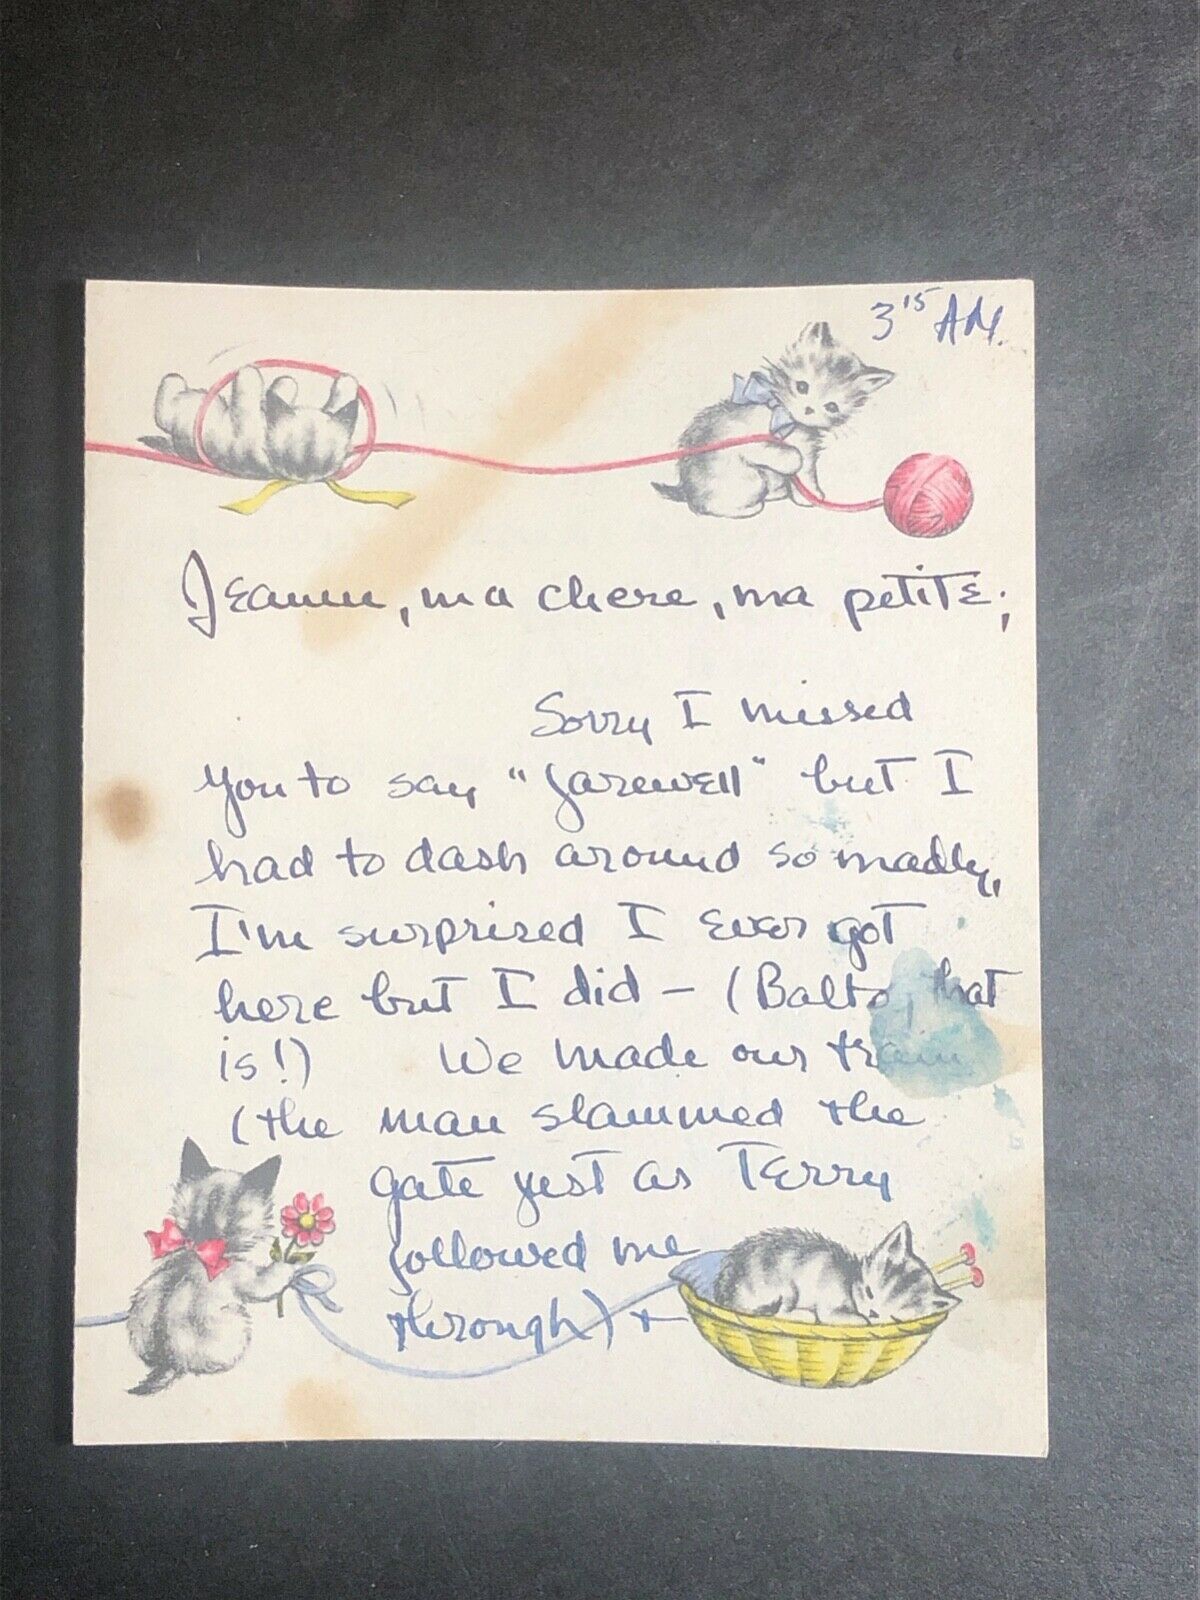 3¹⁵ AM.
Jeanne, ma chere, ma petite;
Sorry I missed
you to say "farewell" but I
had to dash around so madly,
I'm surprised I ever got
here but I did – (Balto, that
is!) We made our train
(the man slammed the
gate yest as Terry
followed me
through) +